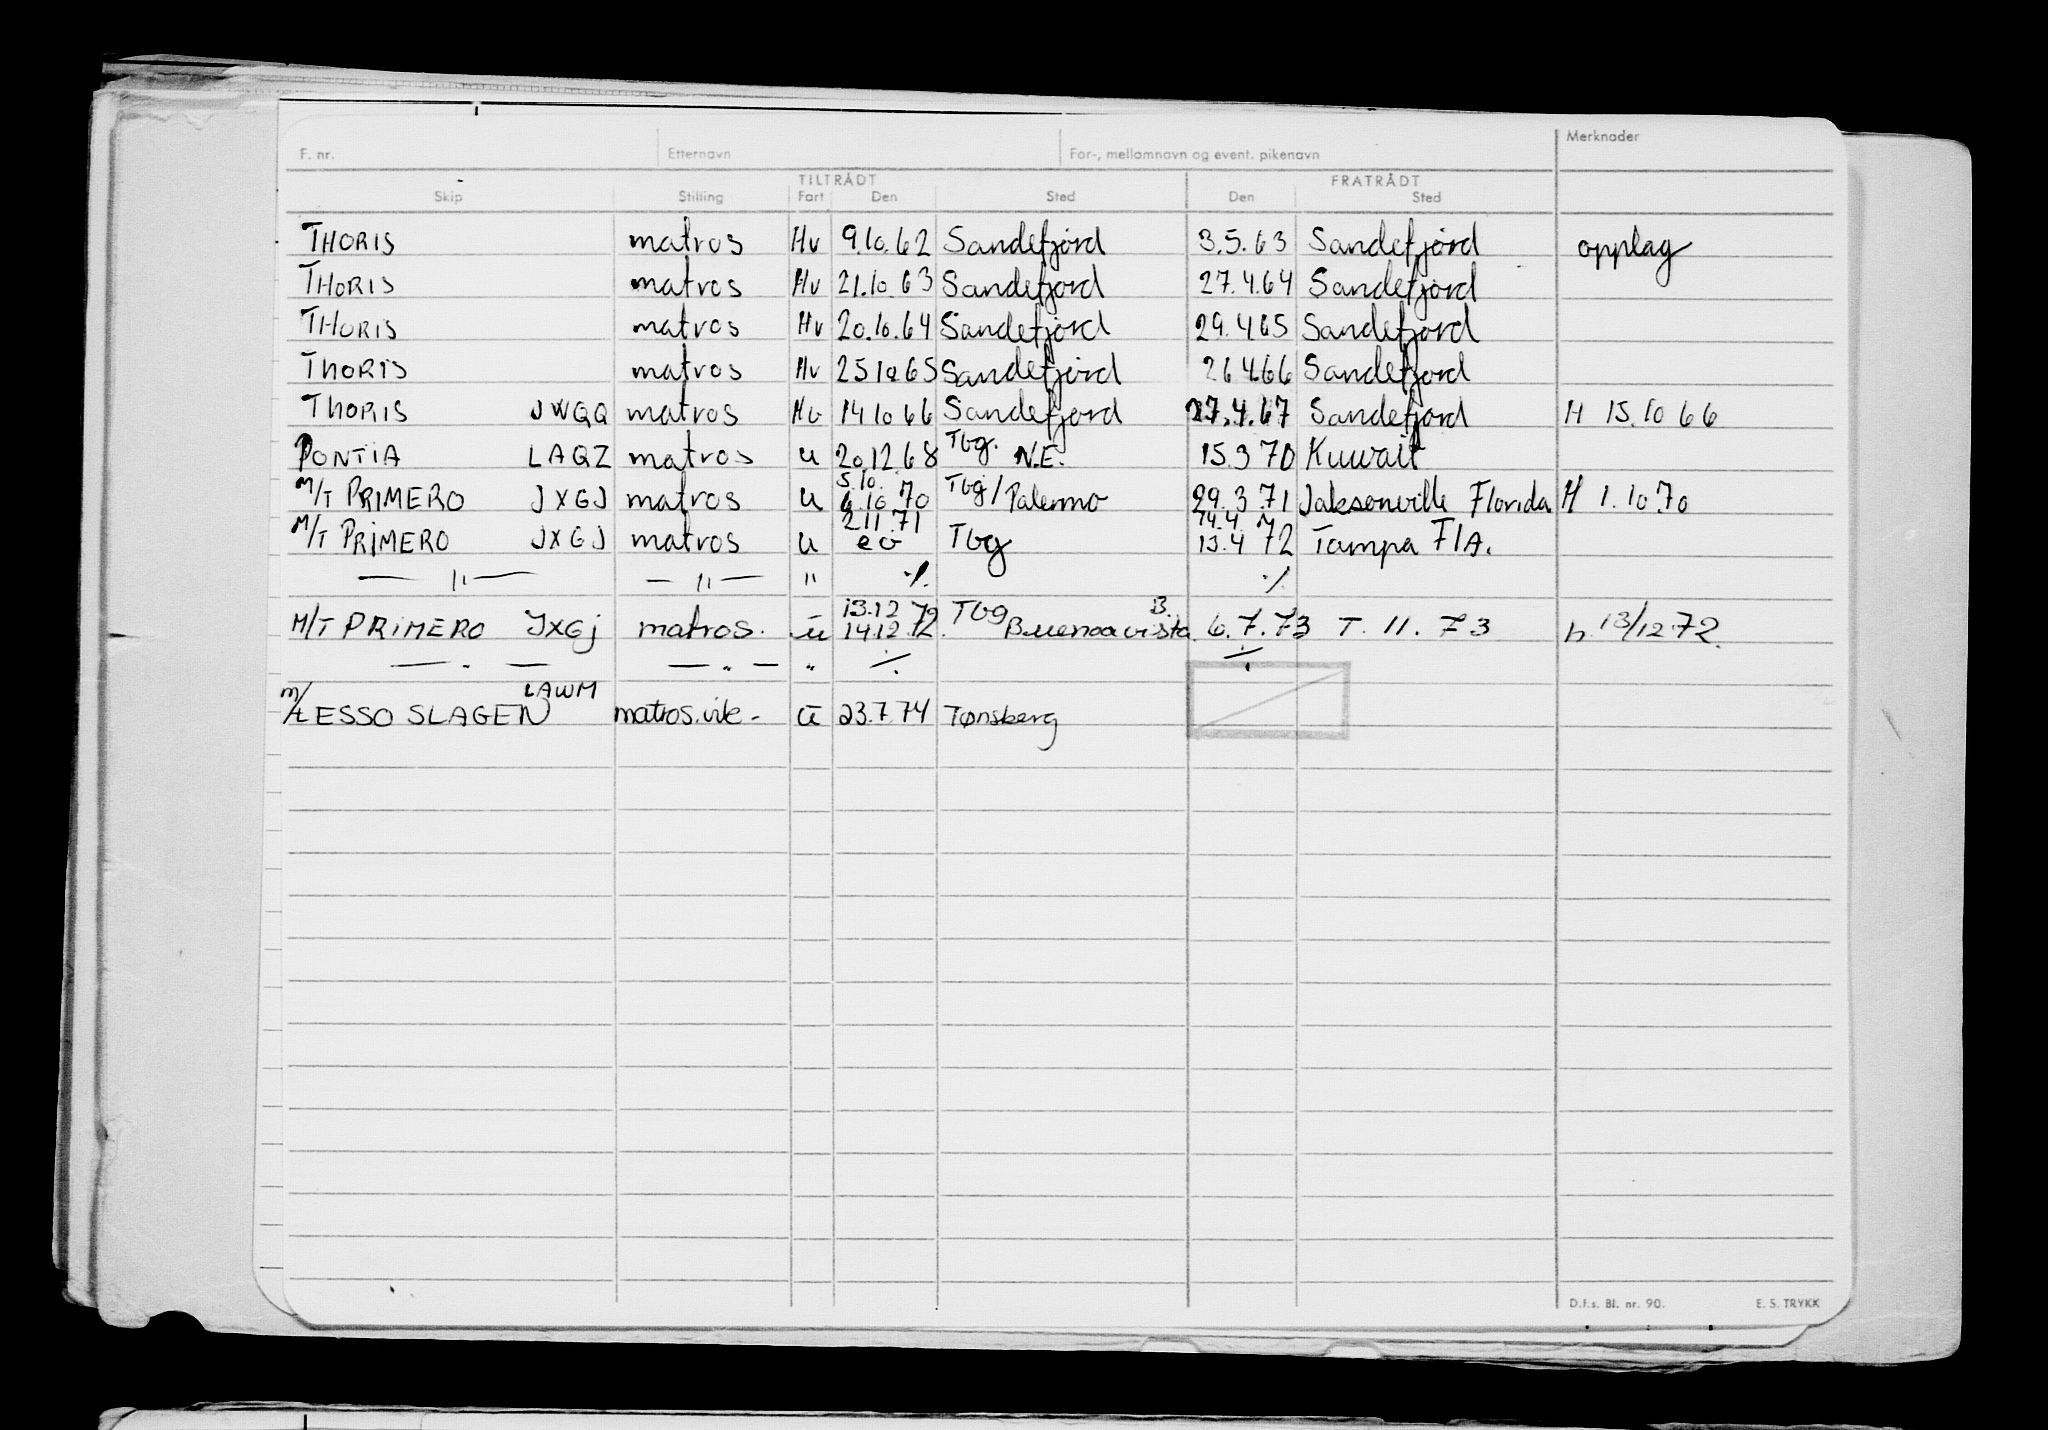 Merknader
F. nr. Etternavn For-, mellomnavn og event. pikenavn
TILTRÅDT FRATRÅDT
Skip Stilling Fart Den Sted Den Sted
THORIS matros Hv 9.10.62 Sandefjord 3.5.63 Sandefjord opplag
THORIS matros Hv 21.10.63 Sandefjord 27.4.64 Sandefjord
THORIS matros Hv 20.10.64 Sandefjord 29.4.65 Sandefjord
THORIS matros Hv 25.10.65 Sandefjord 26.4.66 Sandefjord
THORIS JWQQ matros Hv 14.10.66 Sandefjord 27.4.67 Sandefjord H 15.10 66
PONTIA LAQZ matros u 20.12.68 Tbg. N.E. 15.3 70 Kuwait
5.10.
M/T PRIMERO JXGJ matros u 6.10 70 Tbg/Palermo 29.3 71 Jaksonville Florida H 1.10.70
2.11.71 14.4.
M/T PRIMERO JXGJ matros u Tbg 13.4 72 Tampa FlA.
— " — — " — " ./. ./.
13.12 72 Tbg B.
M/T PRIMERO JXGJ matros. u 14.12.72. Buenaavista 6.7.73 T. 11. 73 h. 13/12 72.
— " — — " — " ./. ./.
LAWM
m/t ESSO SLAGEN matros.vik- u 23.7.74 Tønsberg
D.f.s. Bl. nr. 90. E. S. TRYKK